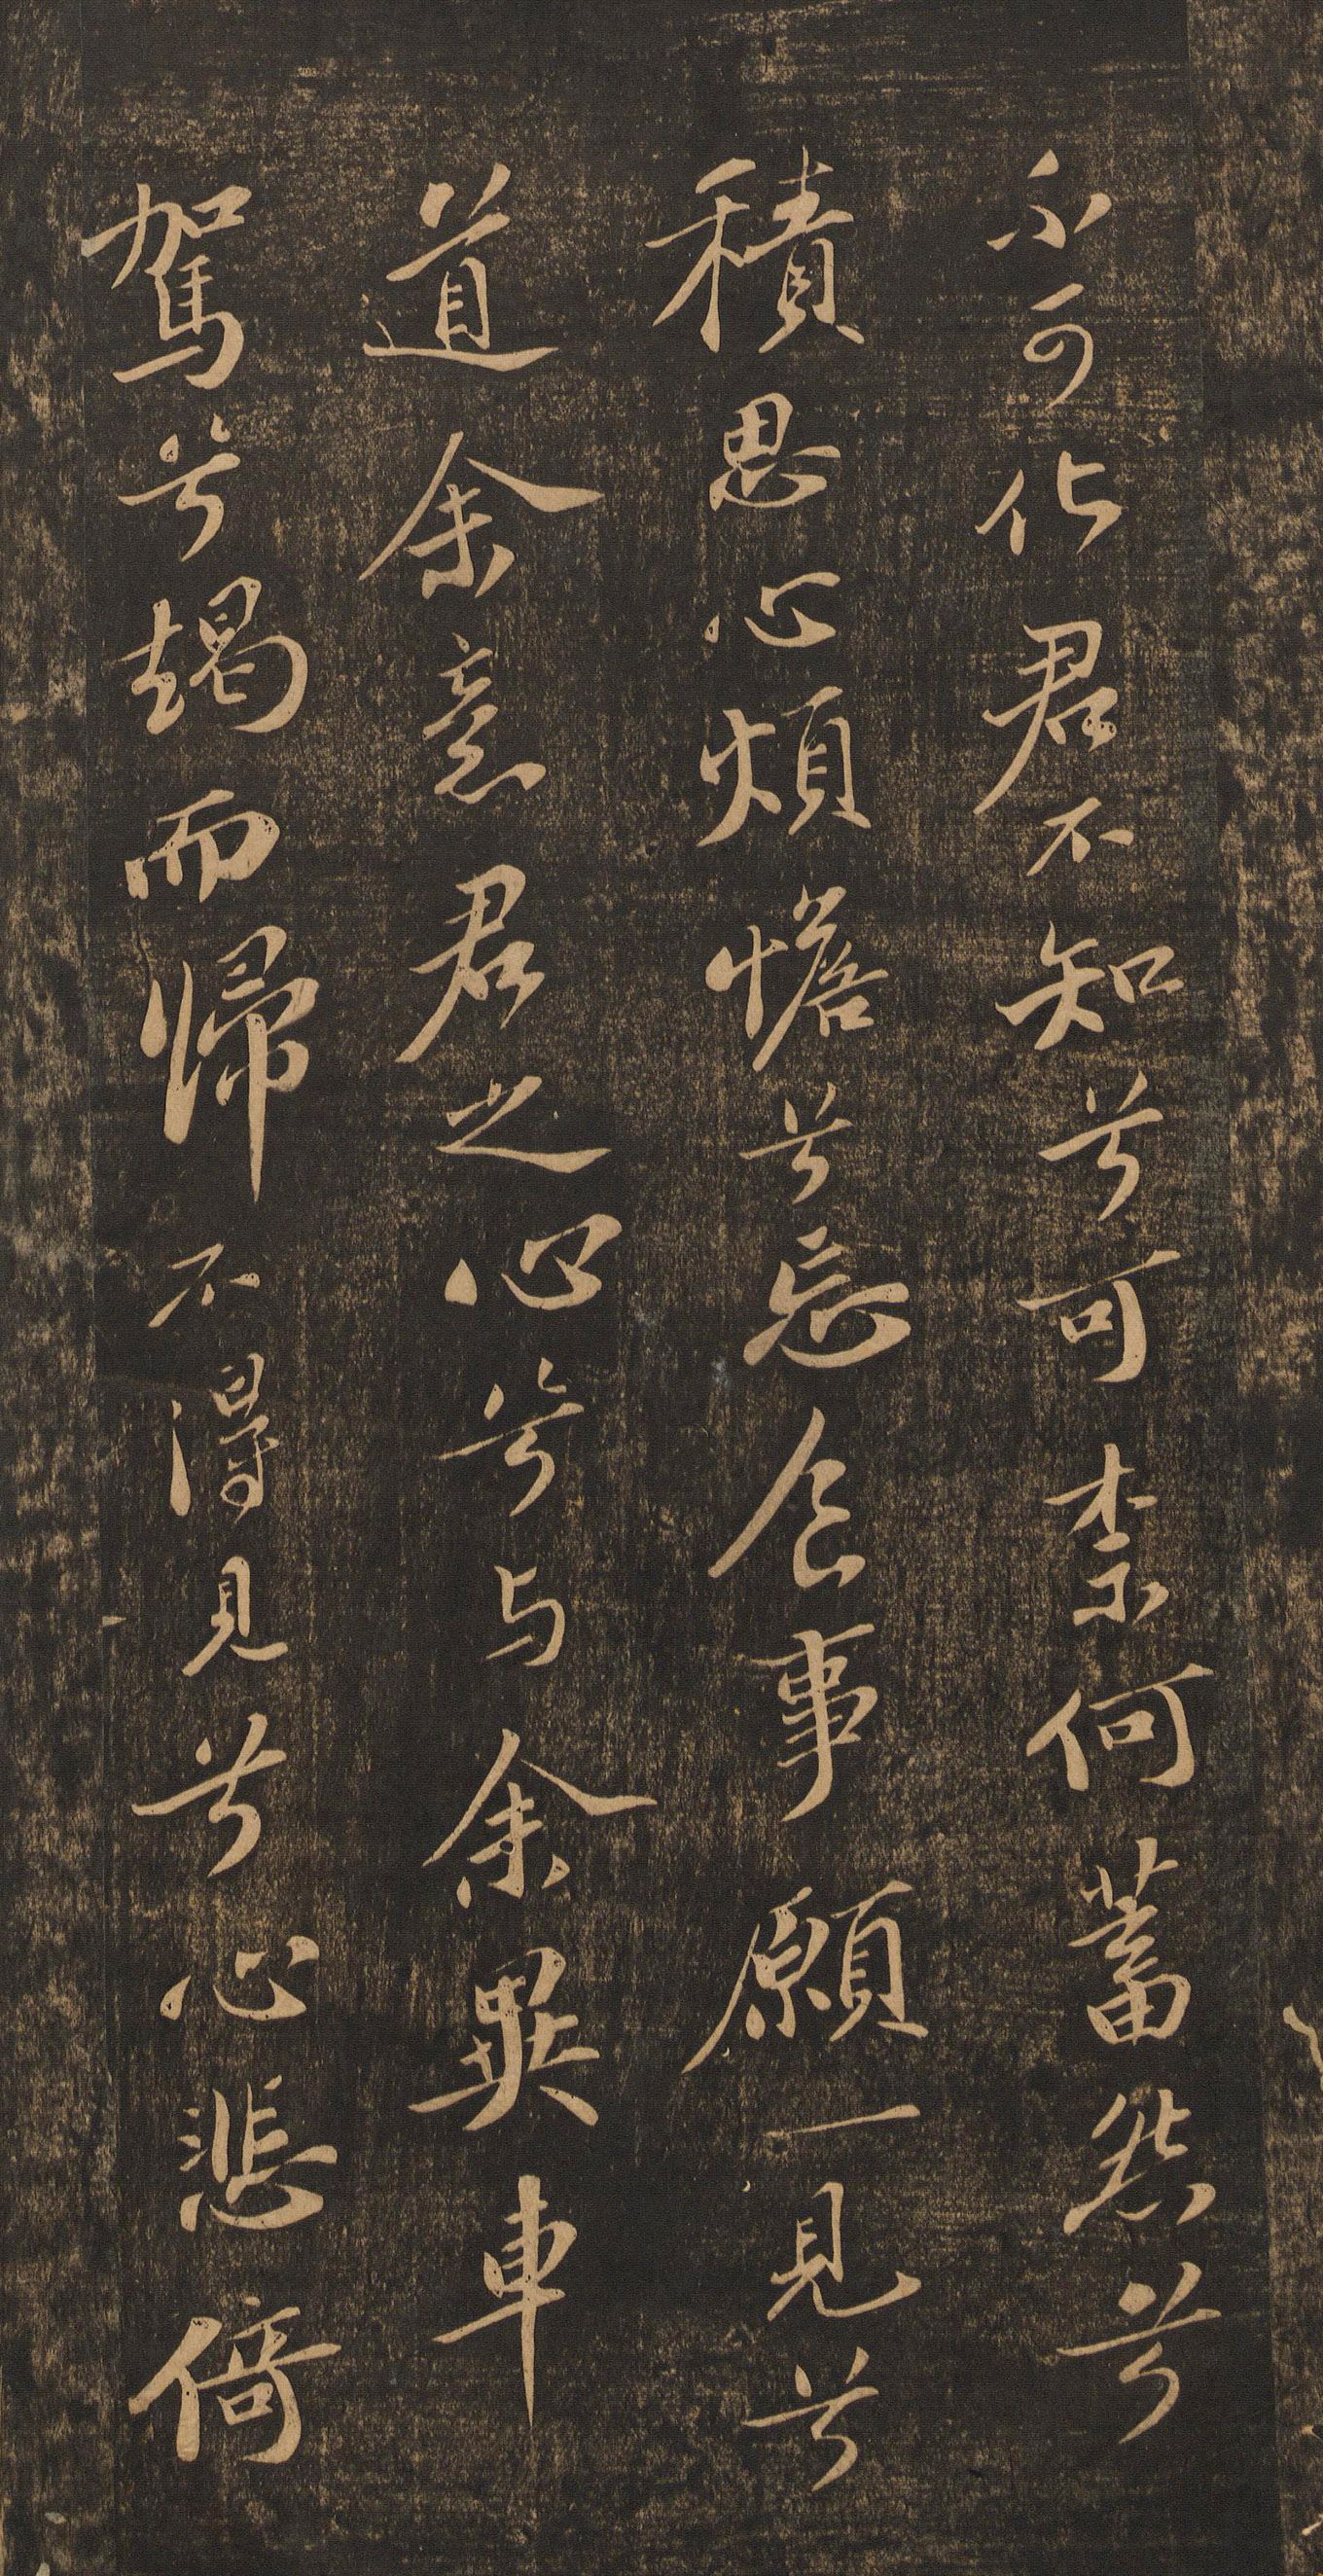 不可化君不知兮可柰何蓄怨兮
積思心煩憺兮忘食事願一見兮
道余意君之心兮与余異車
駕兮朅而歸不得見兮心悲倚